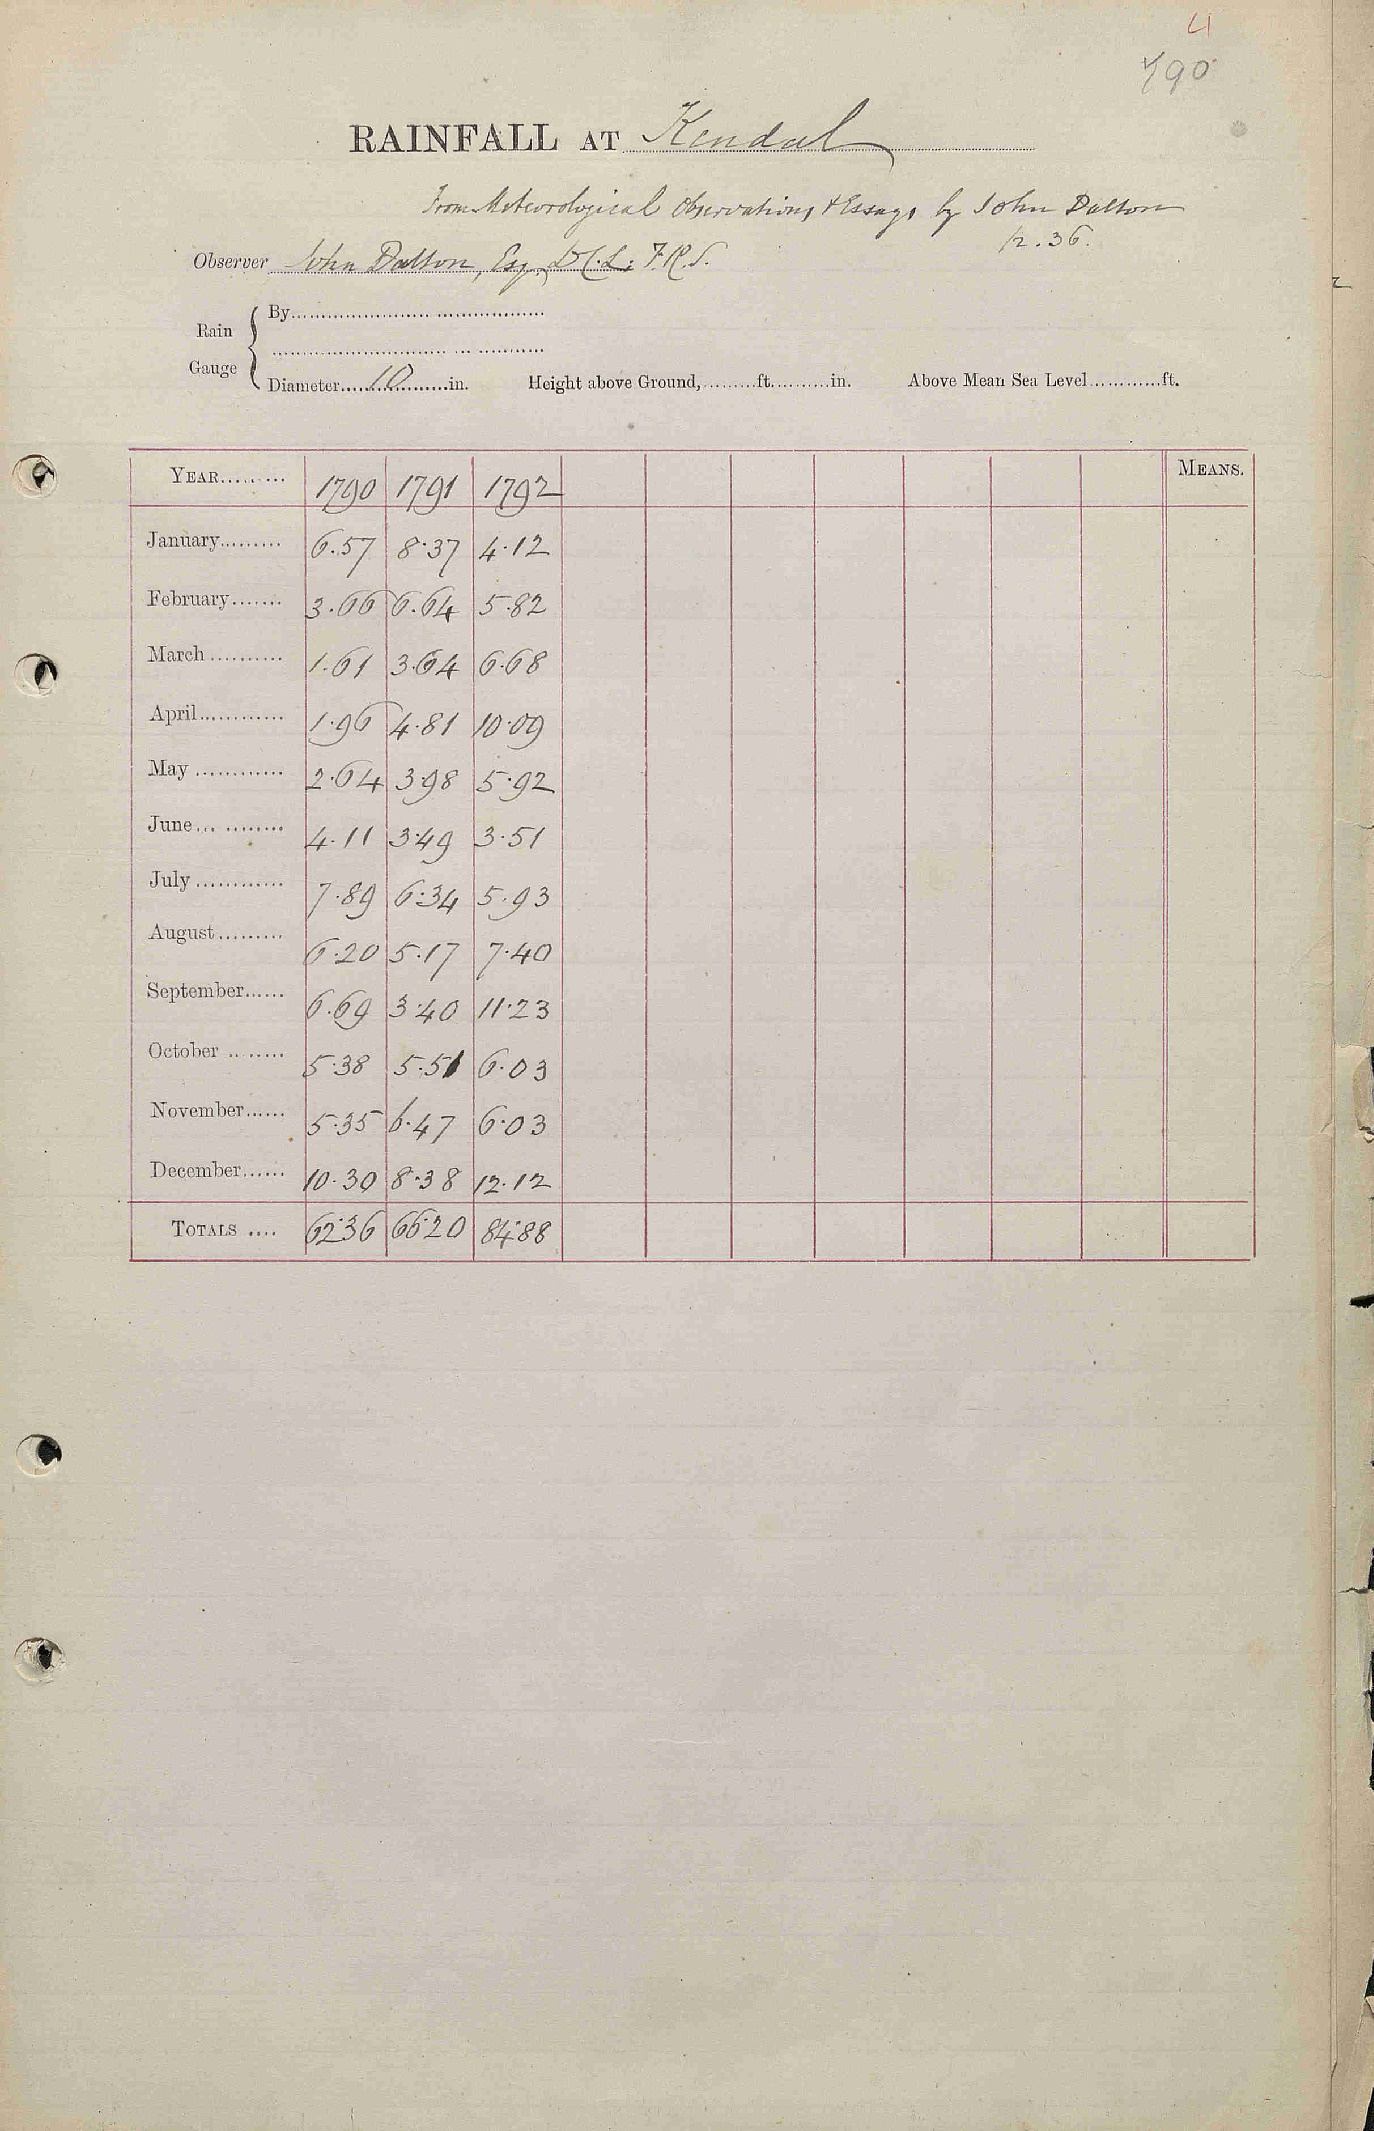 4
1790
RAINFALL AT Kendal
From Meteorological Observations & Essays by John Dalton
p. 36.
Observer John Dalton, Esq., D.C.L; F.R.S.
Rain Gauge { By
Diameter 10 in. Height above Ground, ft. in. Above Mean Sea Level ft.
YEAR 1790 1791 1792 MEANS.
January 6.57 8.37 4.12
February 3.66 6.64 5.82
March 1.61 3.64 6.68
April 1.96 4.81 10.09
May 2.64 3.98 5.92
June 4.11 3.49 3.51
July 7.89 6.34 5.93
August 6.20 5.17 7.40
September 6.69 3.40 11.23
October 5.38 5.51 6.03
November 5.35 6.47 6.03
December 10.30 8.38 12.12
TOTALS 62.36 66.20 84.88